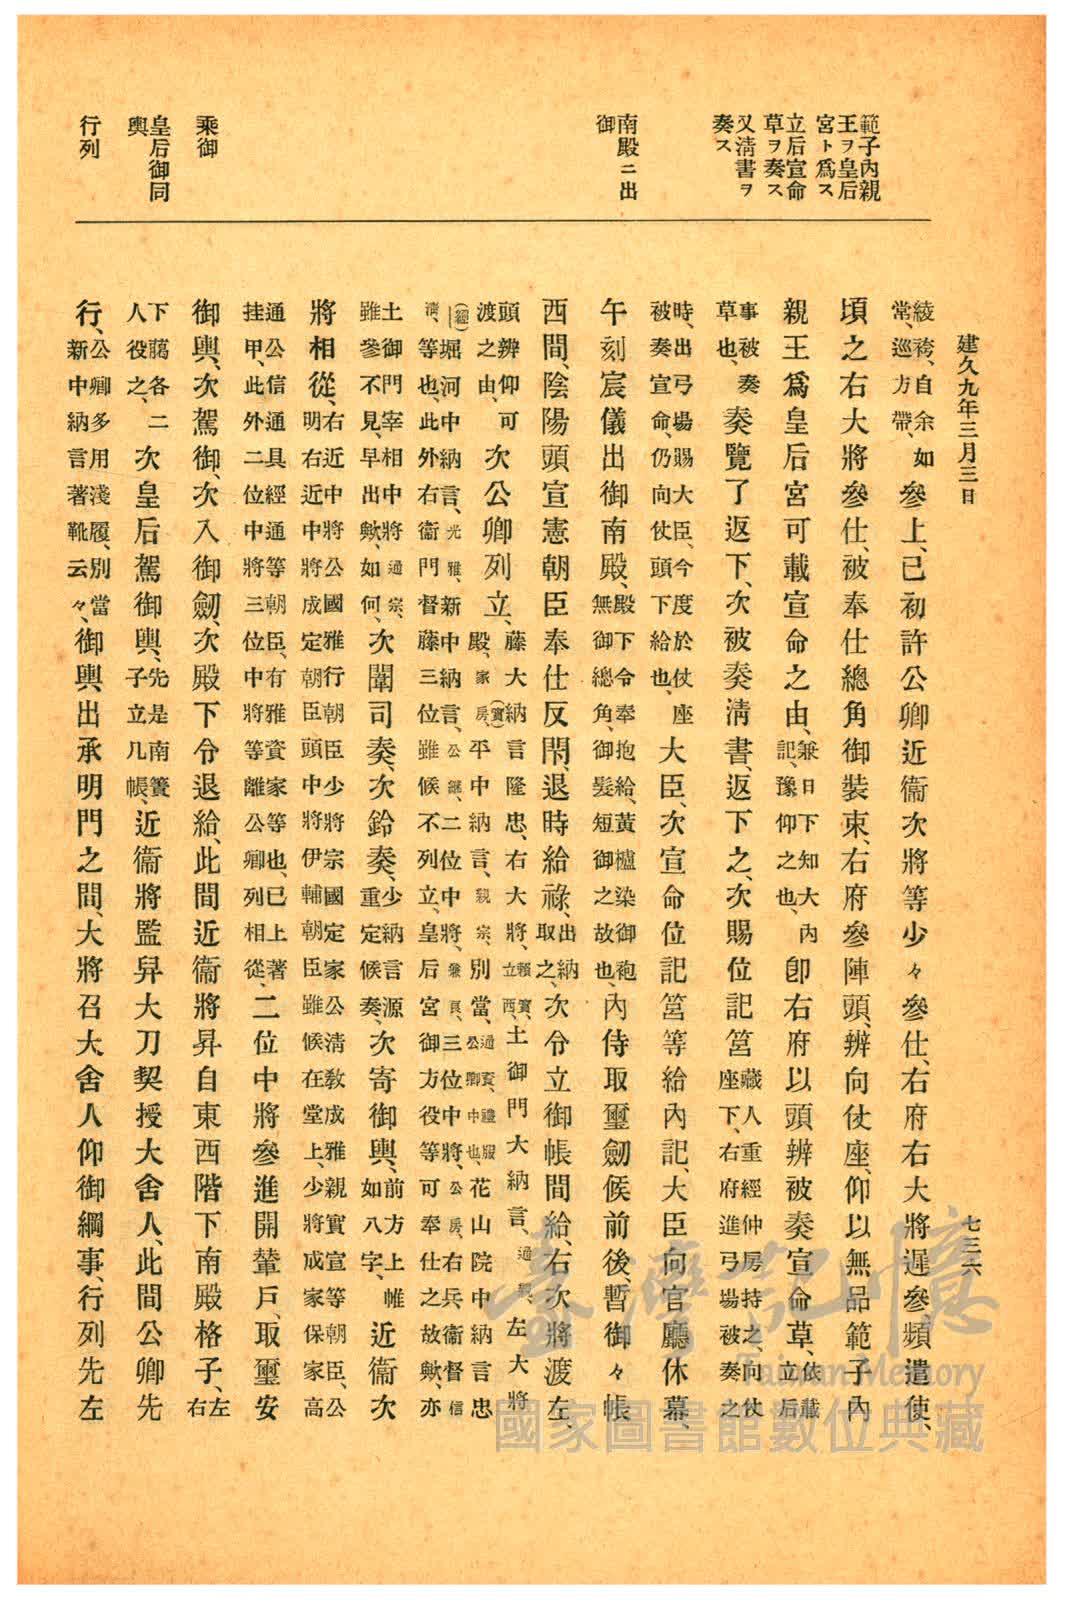 建久九年三月三日
七三六
範子內親
王ヲ皇后
宮ト爲ス
立后宣命
草ヲ奏ス
又淸書ヲ
奏ス
南殿ニ出
御
乘御
皇后御同
輿
行列
綾袴、自余如常、巡方帶、參上、已初許公卿近衞次將等少々參仕、右府右大將遲參、頻遣使、
頃之右大將參仕、被奉仕總角御裝束、右府參陣頭、辨向仗座、仰以無品範子內
親王爲皇后宮可載宣命之由、兼日下知大內記、豫仰之也、卽右府以頭辨被奏宣命草、依載立后
事被奏草也、奏覽了返下、次被奏淸書、返下之、次賜位記筥藏人重經仲房持之、向仗座下、右府進弓場被奏之
時、出弓場賜大臣、今度於仗座被奏宣命、仍向仗頭下給也、大臣、次宣命位記筥等給內記、大臣向官廳休幕、
午刻宸儀出御南殿、殿下令奉抱給、黃櫨染御袍無御總角、御髮短御之故也、內侍取璽劒候前後、暫御々帳
西間、陰陽頭宣憲朝臣奉仕反閇、退時給祿、出納取之、次令立御帳間給、右次將渡左、
頭辨仰可渡之由、次公卿列立、藤大納言隆忠、右大將、賴實、立西、土御門大納言、通親、左大將殿、家房、(實)平中納言、親宗、別當、通資、禮服公卿中也、花山院中納言忠
(經)堀河中納言、光雅、新中納言、公繼、二位中將、兼良、三位中將、公房、右兵衞督信淸、等也、此外右衞門督藤三位雖候不列立、皇后宮御方役等可奉仕之故歟、亦
土御門宰相中將通宗、雖參不見、早出歟、如何、次闈司奏、次鈴奏、少納言源重定候奏、次寄御輿、前方上帷如八字、近衞次
將相從、右近中將公國雅行朝臣少將宗國定家公淸敎成雅親實宣等朝臣、公明右近中將成定朝臣頭中將伊輔朝臣雖候在堂上、少將成家保家高
通公信通具經通等朝臣、有雅資家等也、已上著挂甲、此外二位中將三位中將等離公卿列相從、二位中將參進開輦戶、取璽安
御輿、次駕御、次入御劒、次殿下令退給、此間近衞將昇自東西階下南殿格子、左右
下﨟各二人役之、次皇后駕御輿、先是南簀子立几帳、近衞將監舁大刀契授大舍人、此間公卿先
行、公卿多用淺履、別當新中納言著靴云々、御輿出承明門之間、大將召大舍人仰御綱事、行列先左
臺灣記憶
Taiwan Memory
國家圖書館數位典藏